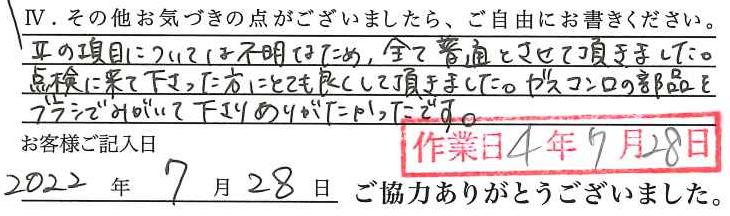 Ⅳ．その他お気づきの点がございましたら、ご自由にお書きください。
Ⅱの項目については不明なため、全て普通とさせて頂きました。
点検に来て下さった方にとても良くして頂きました。ガスコンロの部品を
ブラシでみがいて下さりありがたかったです。
お客様ご記入日
作業日4年7月28日
2022年7月28日 ご協力ありがとうございました。